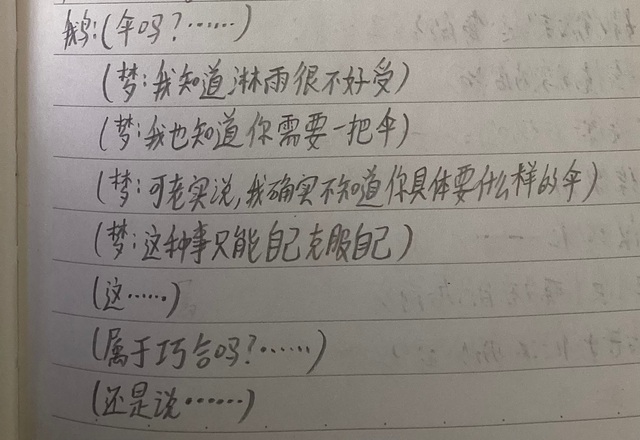 鹅:(伞吗?……)
(梦:我知道淋雨很不好受)
(梦:我也知道你需要一把伞)
(梦:可老实说,我确实不知道你具体要什么样的伞)
(梦:这种事只能自己克服自己)
(这……)
(属于巧合吗?……)
(还是说……)